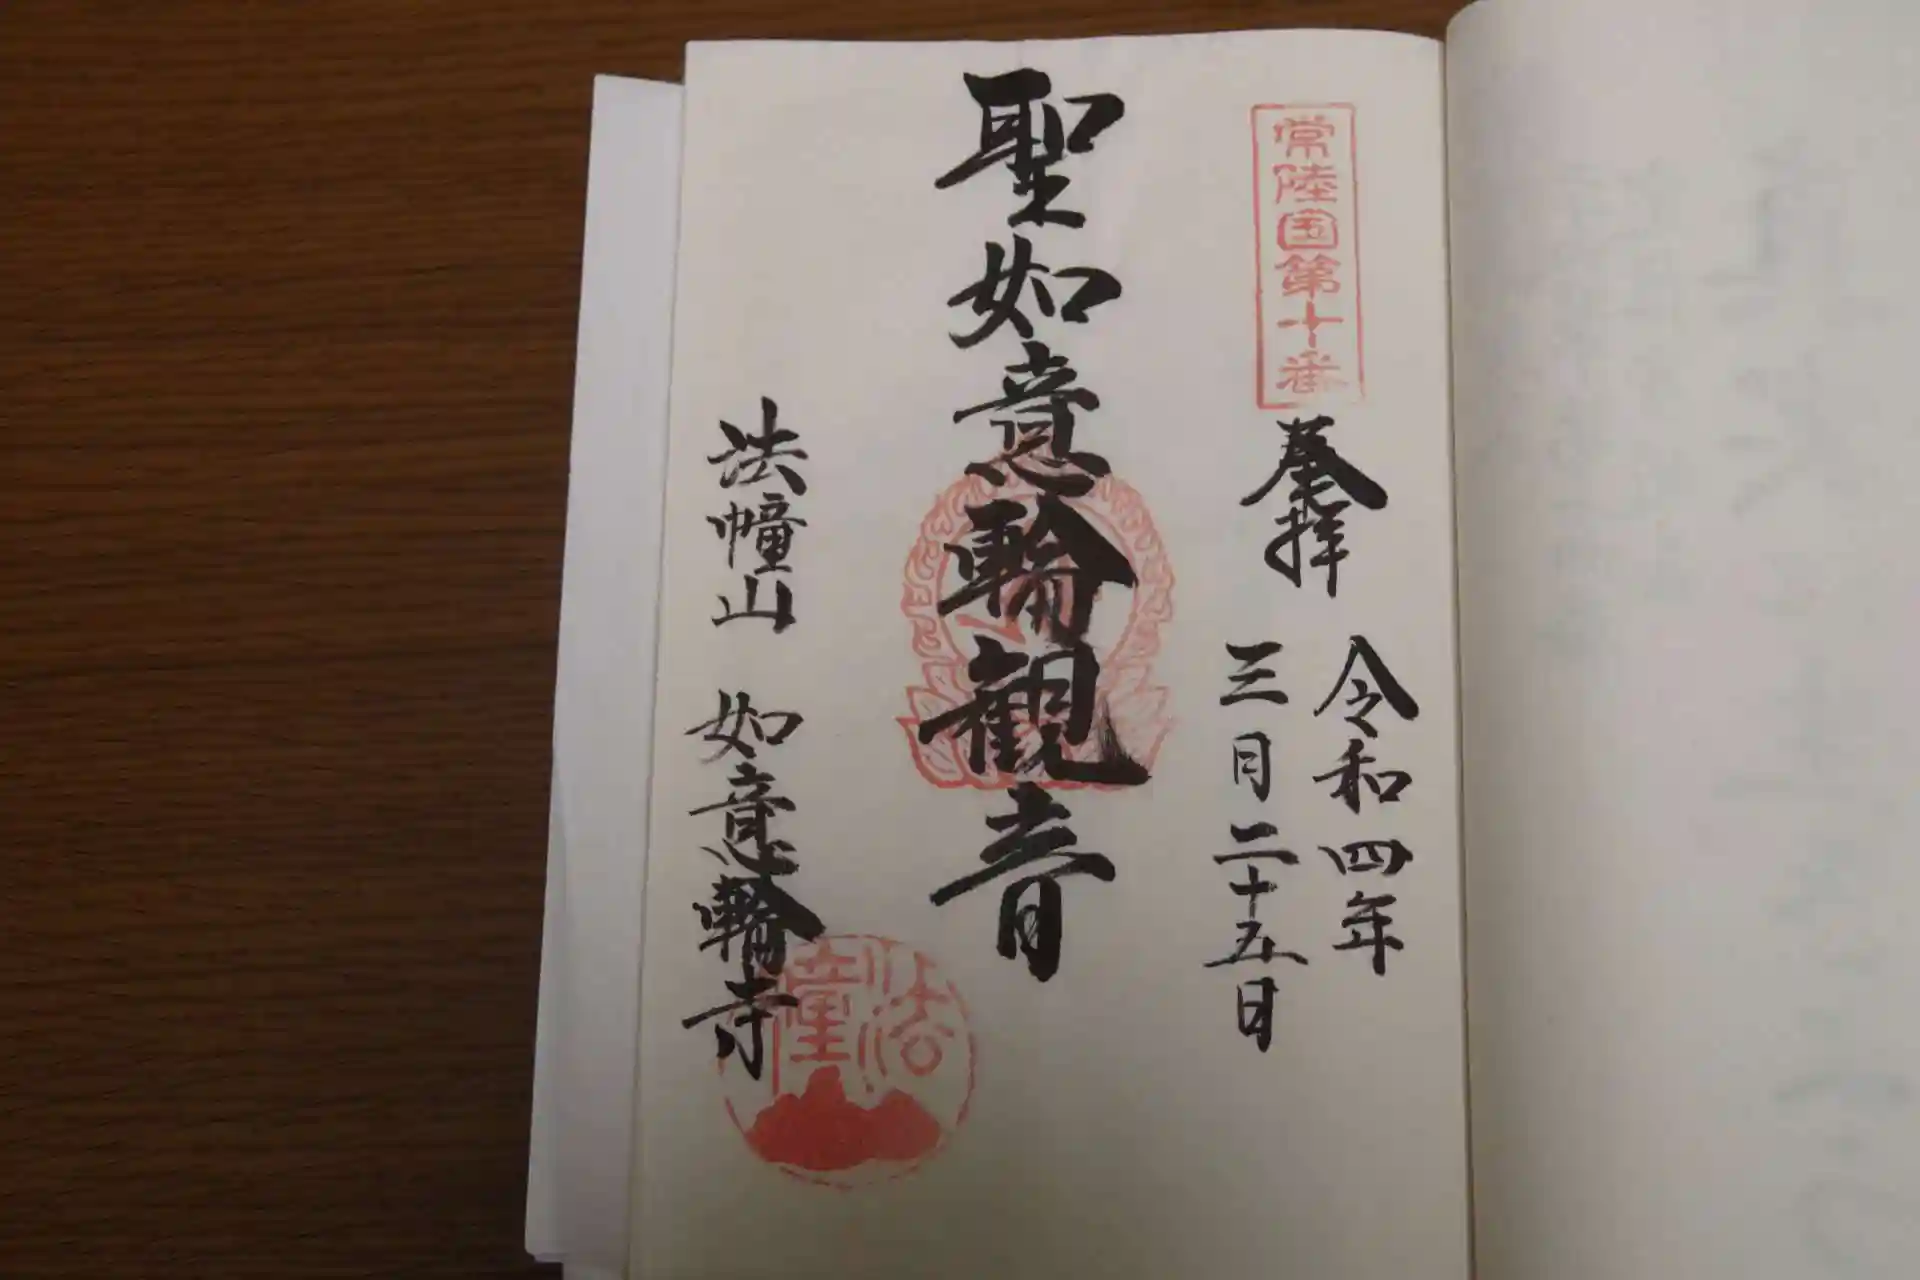 常陸国第十番
奉拝
令和四年
三月二十五日
聖如意輪観音
法幢山 如意輪寺
法幢